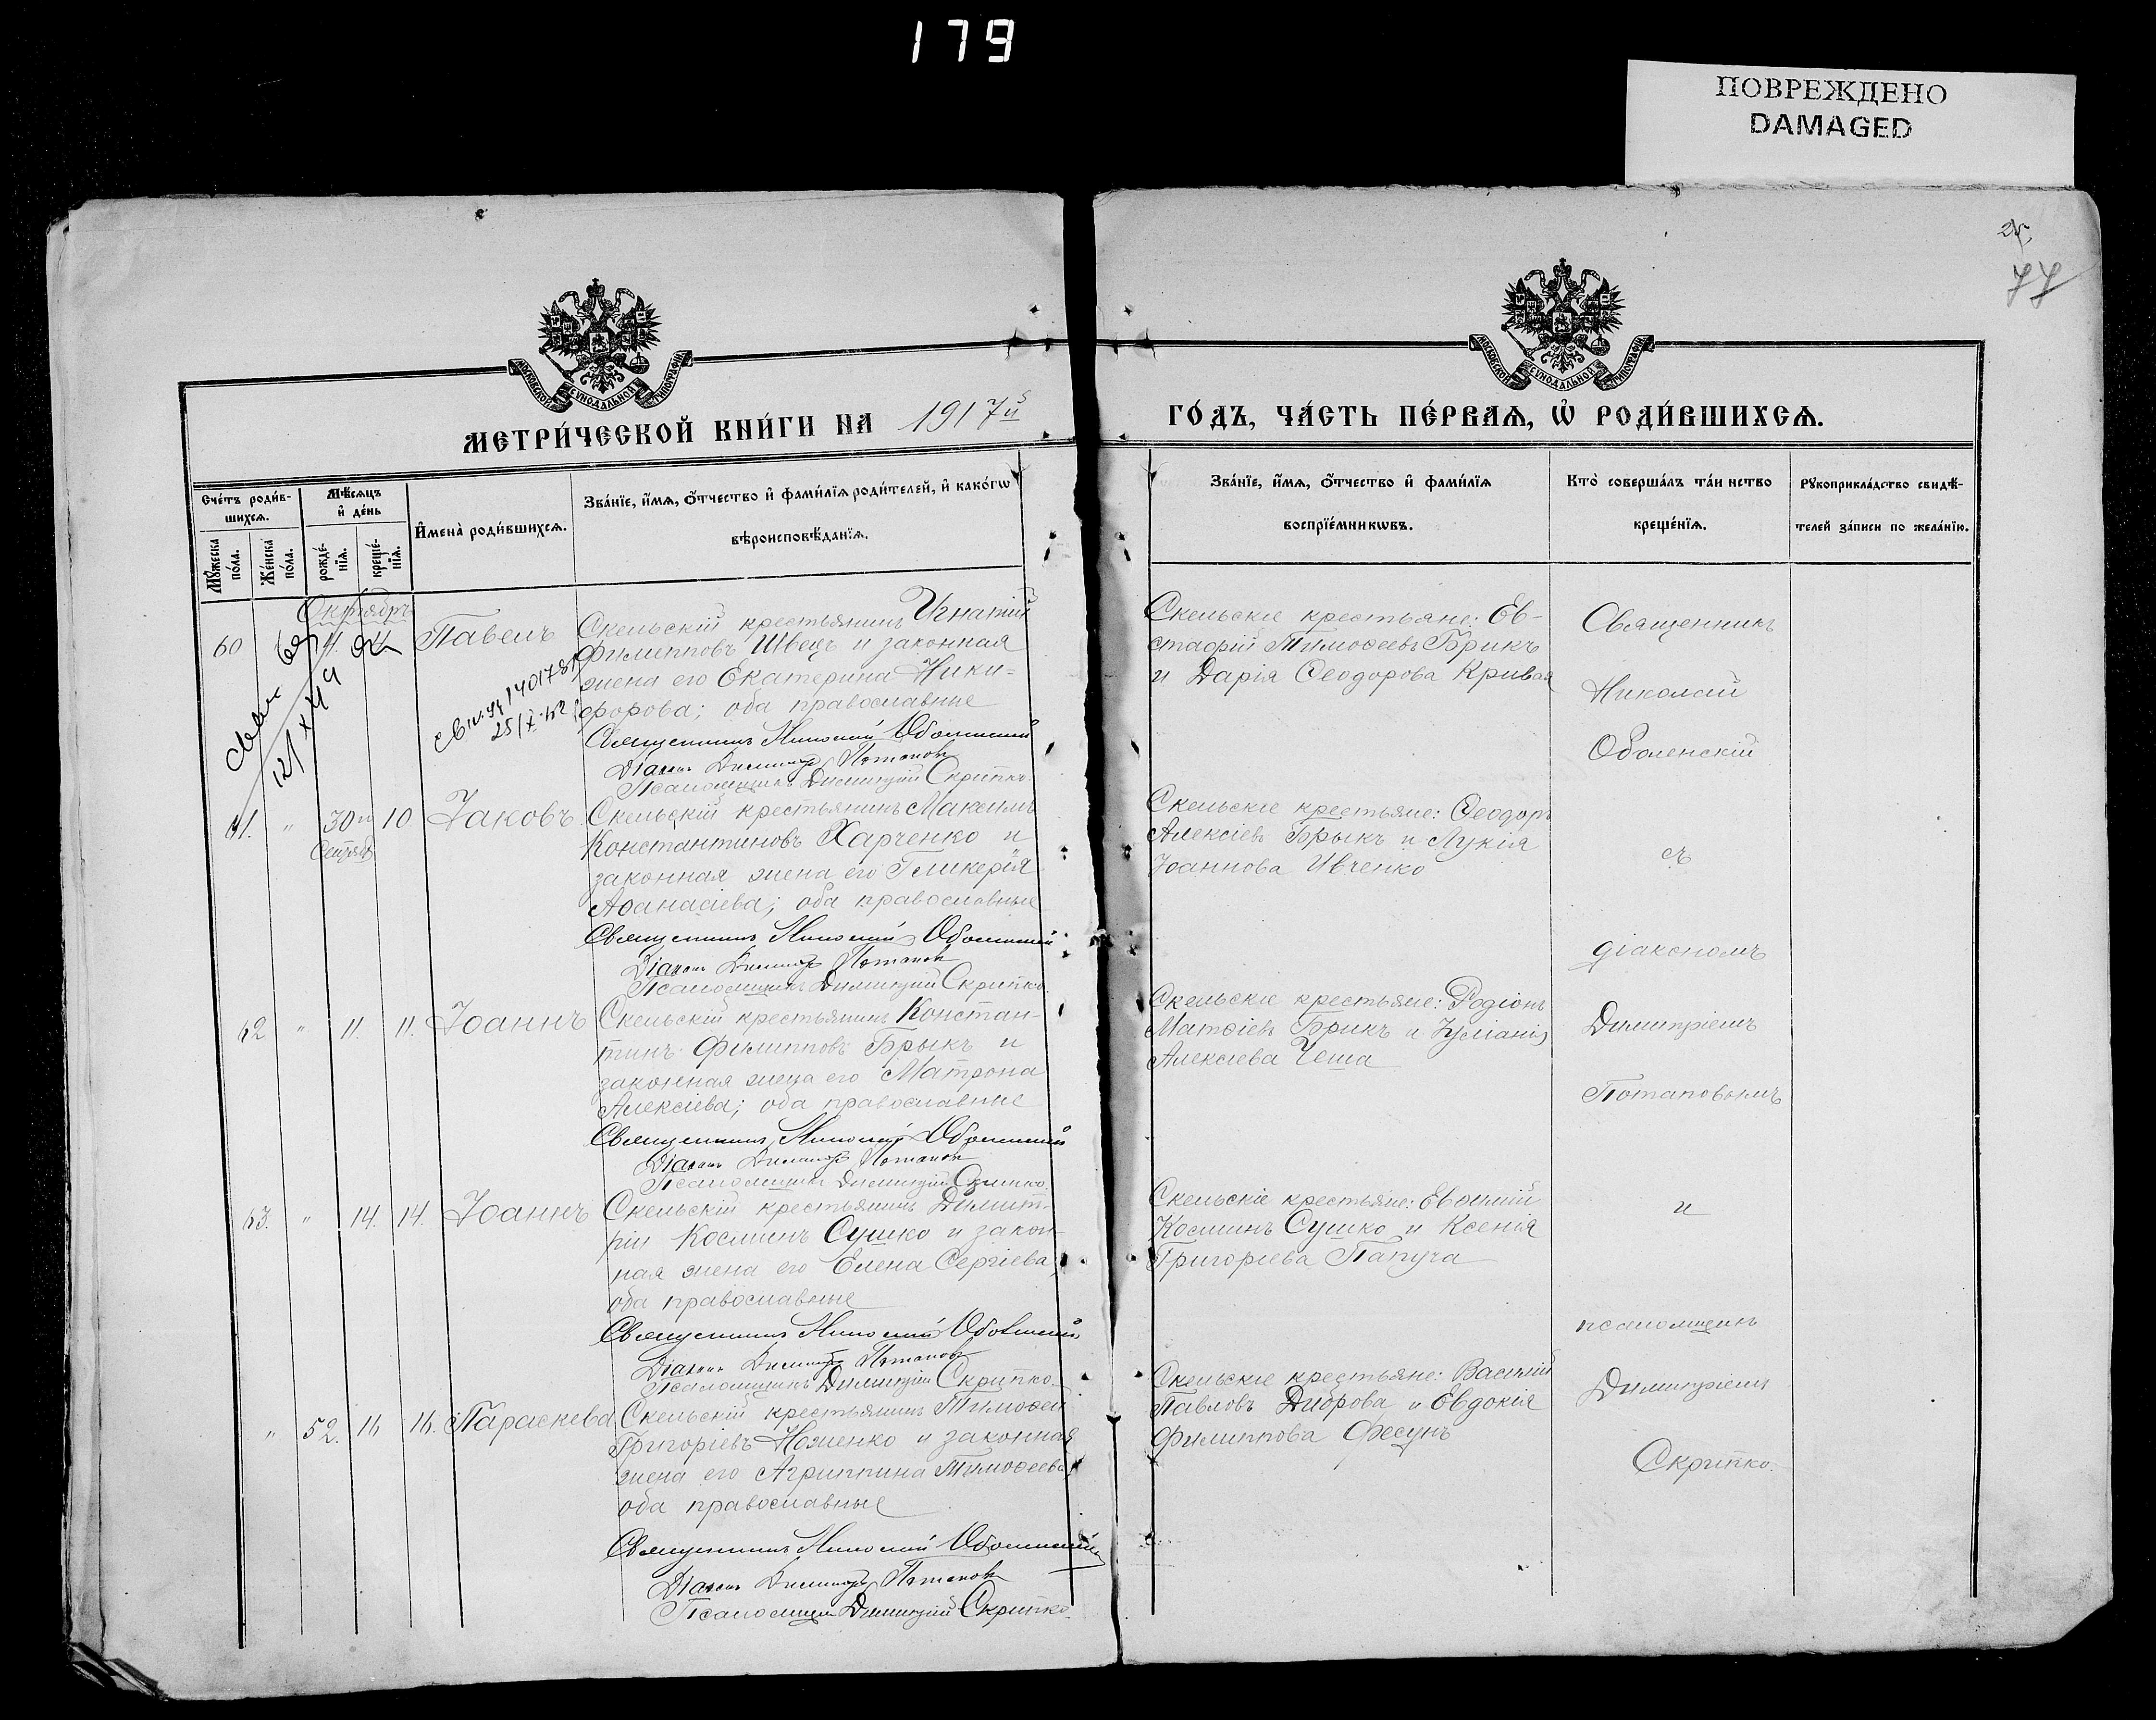 179
ПОВРЕЖДЕНО
DAMAGED
25,
77
МОСКОВСКОЙ СѴНОДАЛЬНОЙ ТИПОГРАФІИ
МОСКОВСКОЙ СѴНОДАЛЬНОЙ ТИПОГРАФІИ
МЕТРИ́ЧЕСКОЙ КНИ́ГИ НА 1917й
ГО́ДЪ, ЧА́СТЬ ПЕ́РВАѦ, Ѡ҆ РОДИ́ВШИХСѦ.
Сче́тъ роди́в-
шихсѧ.
Мꙋ́жеска по́ла.
Же́нска по́ла.
Мѣ́сѧцъ
и҆ де́нь
рожде́-
нїѧ.
креще́-
нїѧ.
И҆мена̀ роди́вшихсѧ.
Зва́нїе, и҆́мѧ, ѻ҆́тчество и҆ фами́лїѧ роди́телей, и҆ како́гѡ
вѣроисповѣ́данїѧ.
Зва́нїе, и҆́мѧ, ѻ҆́тчество и҆ фами́лїѧ
воспрїе́мникѡвъ.
Кто̀ соверша́лъ та́инство
креще́нїѧ.
Рꙋкоприкла́дство свидѣ́-
телей за́писи по жела́нїю.
Октябрь
60
4.
Павелъ
Скельскій крестьянинъ Игнатій
Филипповъ Швецъ и законная
жена его Екатерина Ники-
форова; оба православные
Священникъ Николай Оболенскій
Діаконъ Димитр Потаповъ
Псаломщикъ Димитрій Скрипко.
Скельскіе крестьяне: Ев-
стафій Тимоѳеевъ Брикъ
и Дарія Ѳеодорова Кривая
Священникъ
Николай
Оболенскій
25/X
12/X
61.
"
30го
Сентяб
10.
Іаковъ
Скельскій крестьянинъ Максимъ
Константиновъ Харченко и
законная жена его Гликерія
Аѳанасіева; оба православные
Священникъ Николай Оболенскій
Діаконъ Димитр Потаповъ
Псаломщикъ Димитрій Скрипко.
Скельскіе крестьяне: Ѳеодоръ
Алексіевъ Брыкъ и Лукія
Іоаннова Ивченко
съ
діакономъ
62
"
11.
11.
Іоаннъ
Скельскій крестьянинъ Констан-
тинъ Филипповъ Брыкъ и
законная жена его Матрона
Алексіева; оба православные
Священникъ Николай Оболенскій
Діаконъ Димитр Потаповъ
Псаломщикъ Димитрій Скрипко.
Скельскіе крестьяне: Родіонъ
Матѳіевъ Брикъ и Іуліанія
Алексіева Чеша
Димитріемъ
Потаповымъ
63.
"
14.
14.
Іоаннъ
Скельскій крестьянинъ Димит-
рій Косминъ Сушко и закон-
ная жена его Елена Сергіева;
оба православные
Священникъ Николай Оболенскій
Діаконъ Димитр Потаповъ
Псаломщикъ Димитрій Скрипко.
Скельскіе крестьяне: Евѳимій
Косминъ Сушко и Ксенія
Григоріева Папуча
и
псаломщик
"
52.
16
16.
Параскева
Скельскій крестьянинъ Тимоѳей
Григоріевъ Ноженко и законная
жена его Агриппина Тимоѳеева;
оба православные
Священникъ Николай Оболенскій
Діаконъ Димитр Потаповъ
Псаломщик Димитрій Скрипко.
Скельскіе крестьяне: Василій
Павловъ Диброва и Евдокія
Филиппова Фесунъ
Димитріемъ
Скрипко.